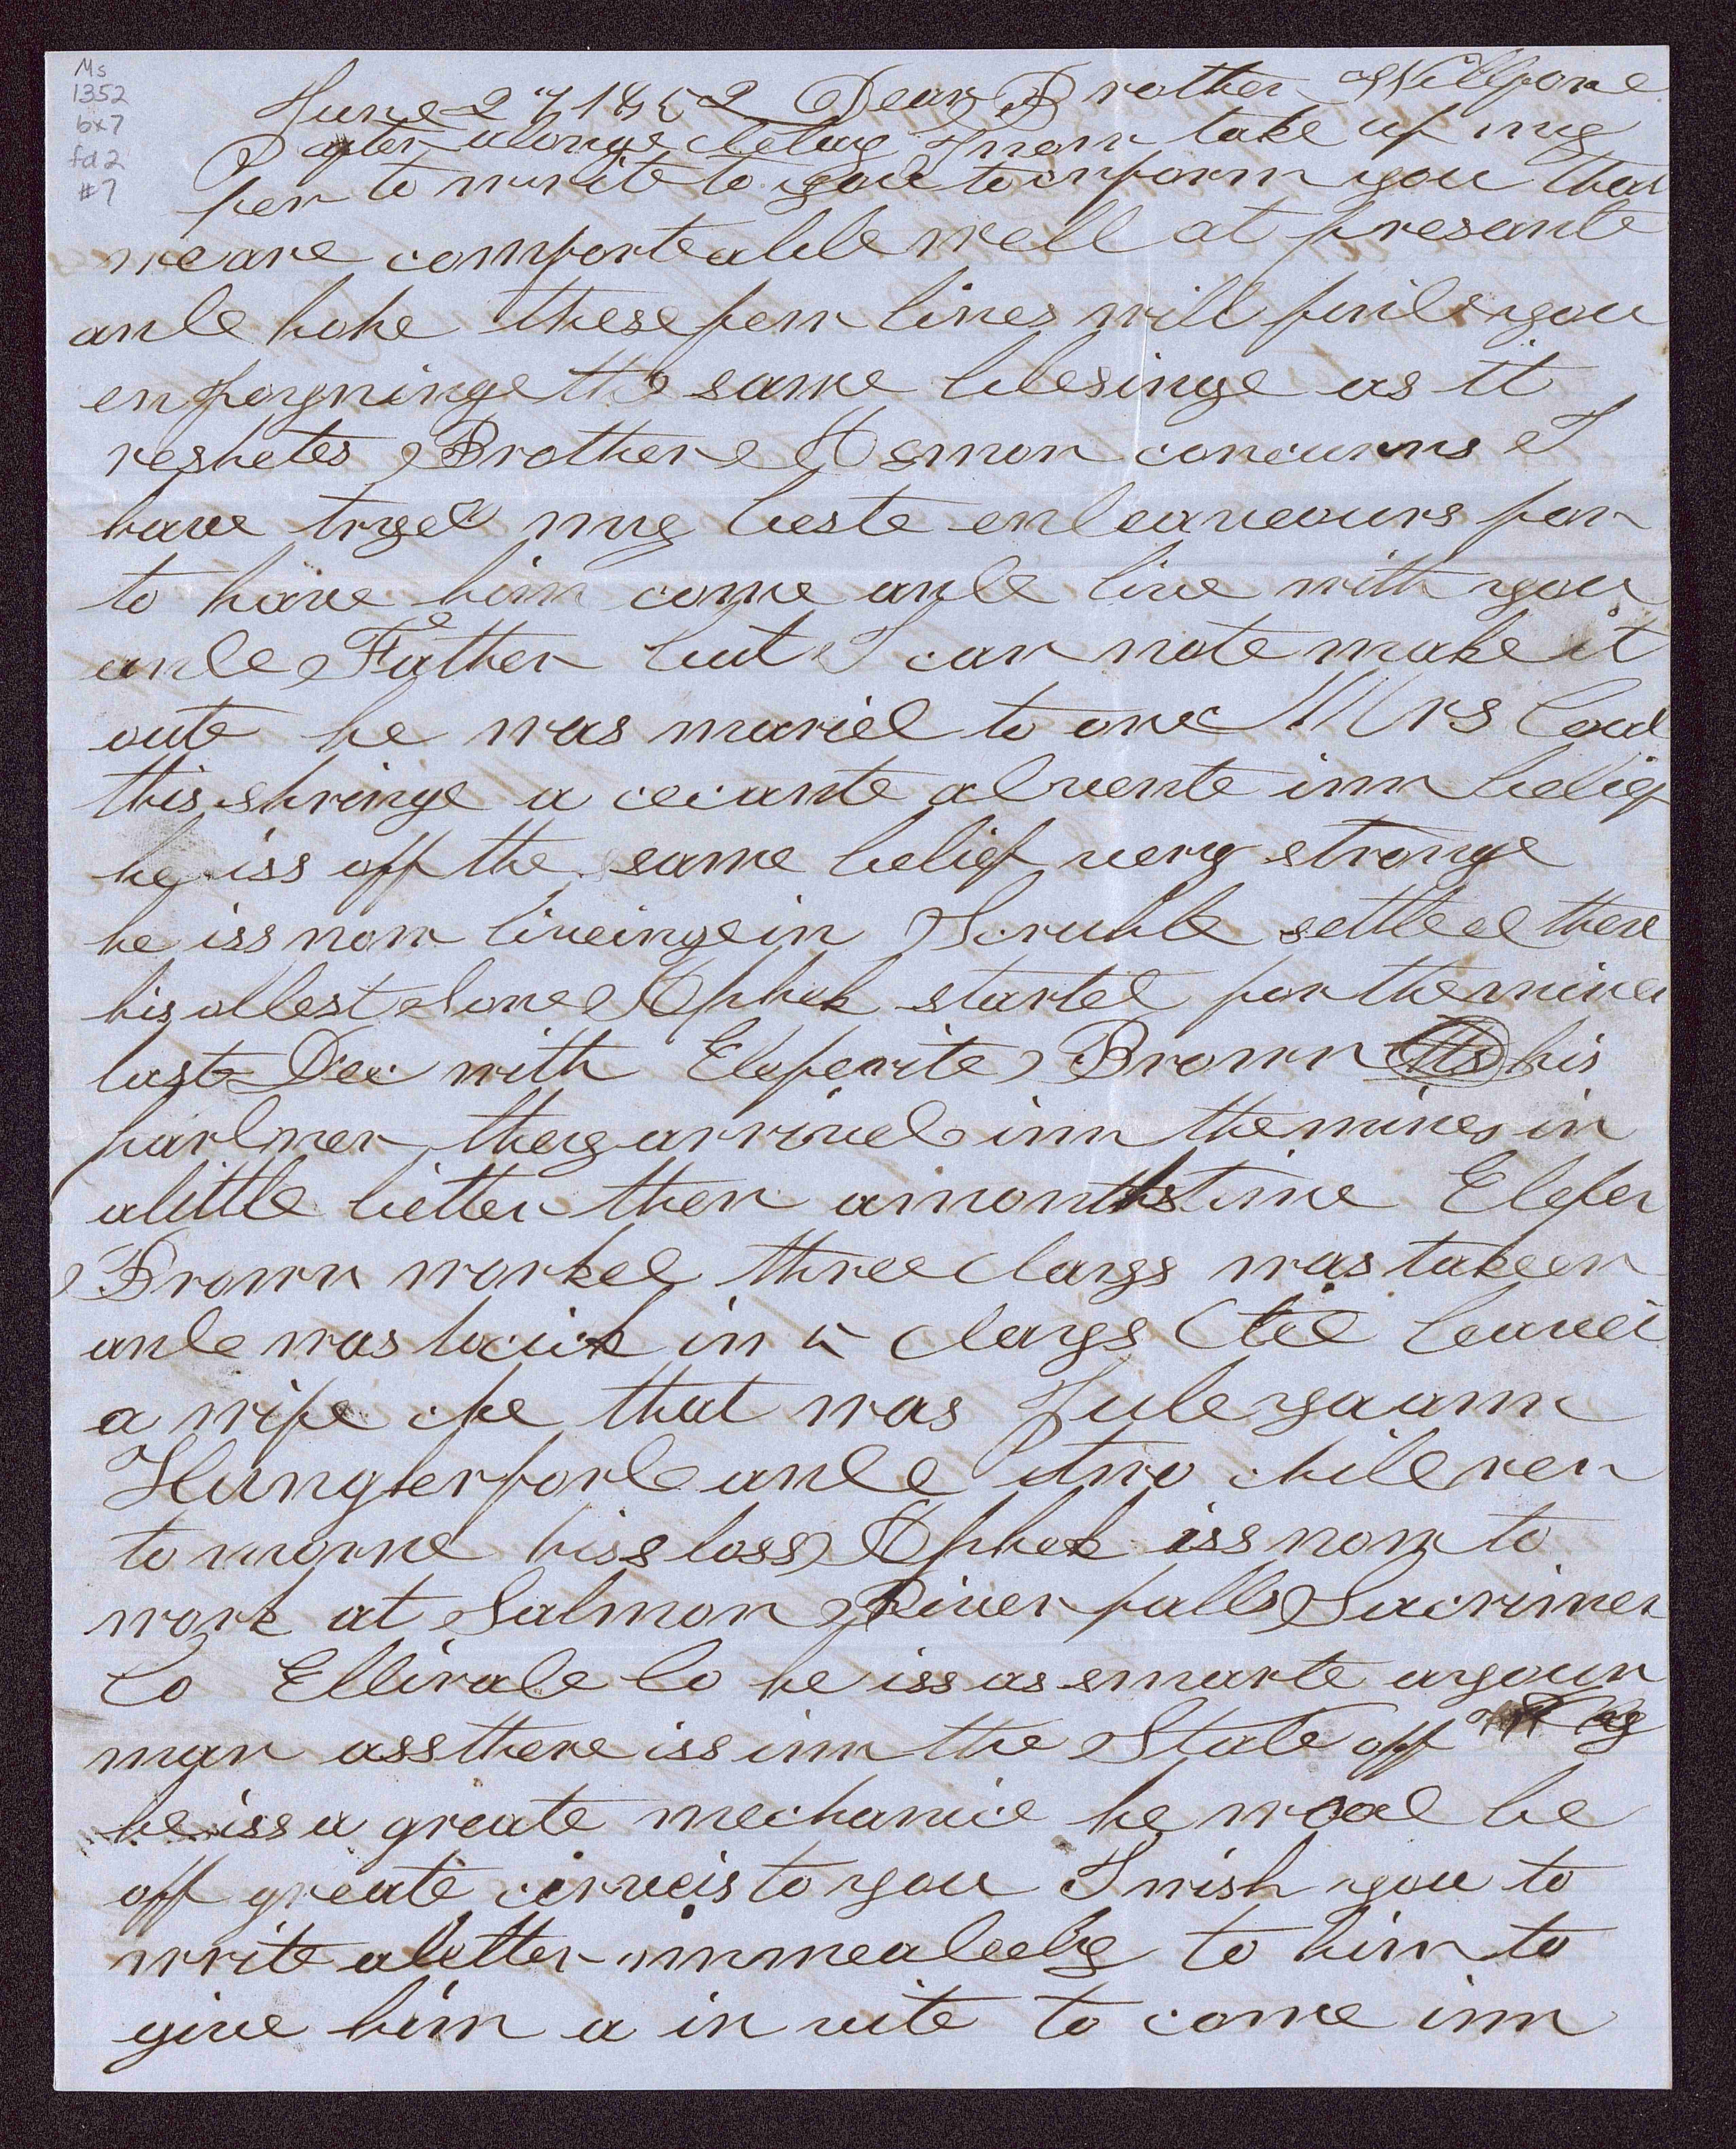 Ms
1352
bx7
fd 2
#7
June 27 1852 Dear Brother Willforde
after alonge delay I now take up my
pen to write to you to inform you that
we are comforteable well at presante
and hope these few lines will find you
the same blesinge as it
respetes Brother Hemon concurns I
have tryed my beste endeaveours for
to have him come and live with you
and Father but I can note make it
oute he was maried to one Mrs
this springe a cecante advente inn belief
he iss off the same belief very stronge
he iss now liveinge in Scrubb settleel there
his oldest Sone started for the mines
last Dec with Brown his
pardner they arrived inn the mines in
alittle better then amonths time
Brown worked three days was taken
and was in 5 days leaves
a wife she that was Juleyaann
Hungerford and two children
to morne hiss loss iss now to
work at Salmon River falls
Co Co he iss as smarte ayour
man ass there iss inn the State off
he iss a greate mechanice he wood be
off greate cerveis to you I wish you to
write aletter immealeely to him to
give him a in vite to come inn